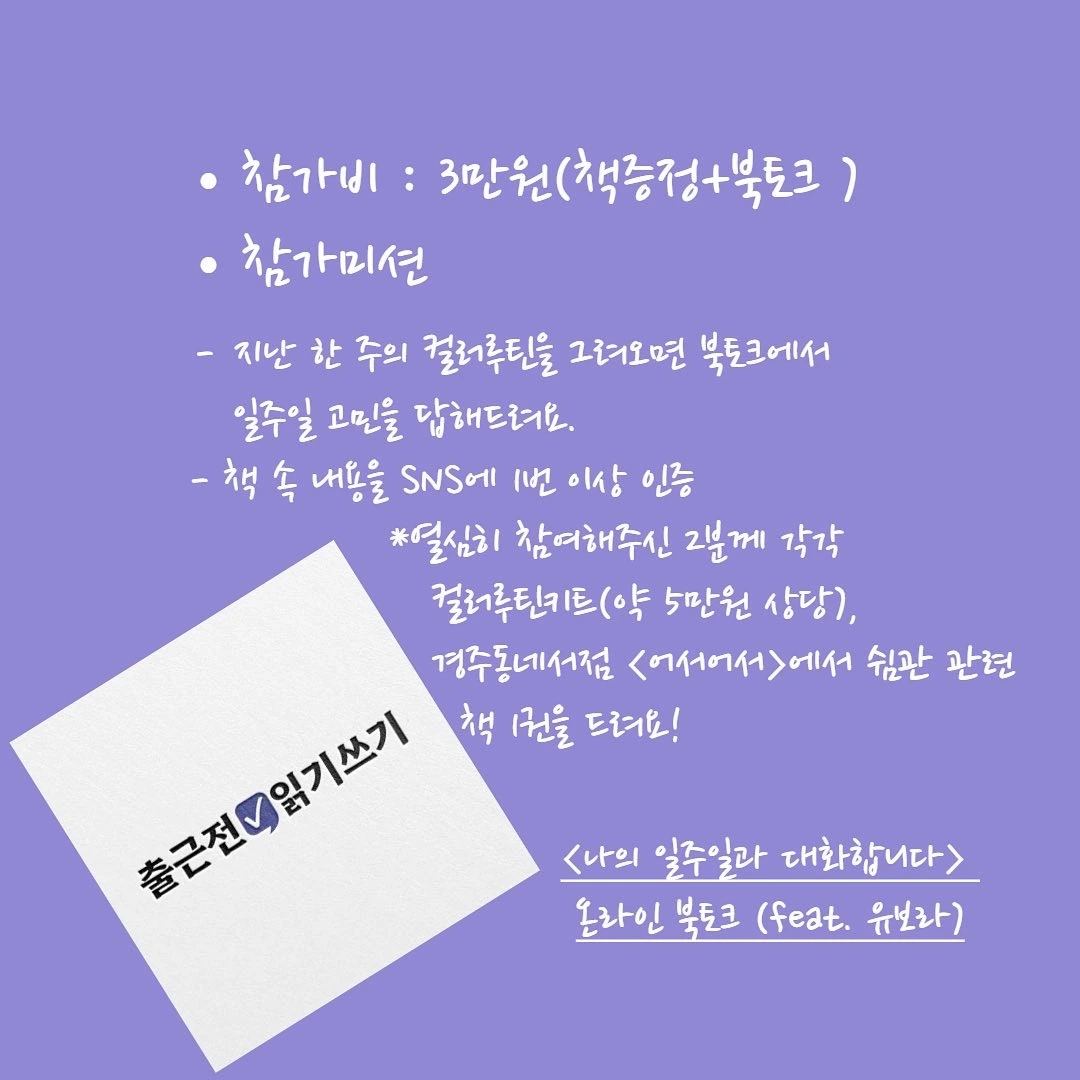 • 참가비 : 3만원(책증정+북토크 )
• 참가미션
- 지난 한 주의 컬러루틴을 그려오면 북토크에서
일주일 고민을 답해드려요.
- 책 속 내용을 SNS에 1번 이상 인증
*열심히 참여해주신 2분께 각각
컬러루틴키트(약 5만원 상당),
경주동네서점 <어서어서>에서 쉼관 관련
책 1권을 드려요!
출근전 읽기쓰기
<나의 일주일과 대화합니다>
온라인 북토크 (feat. 유보라)